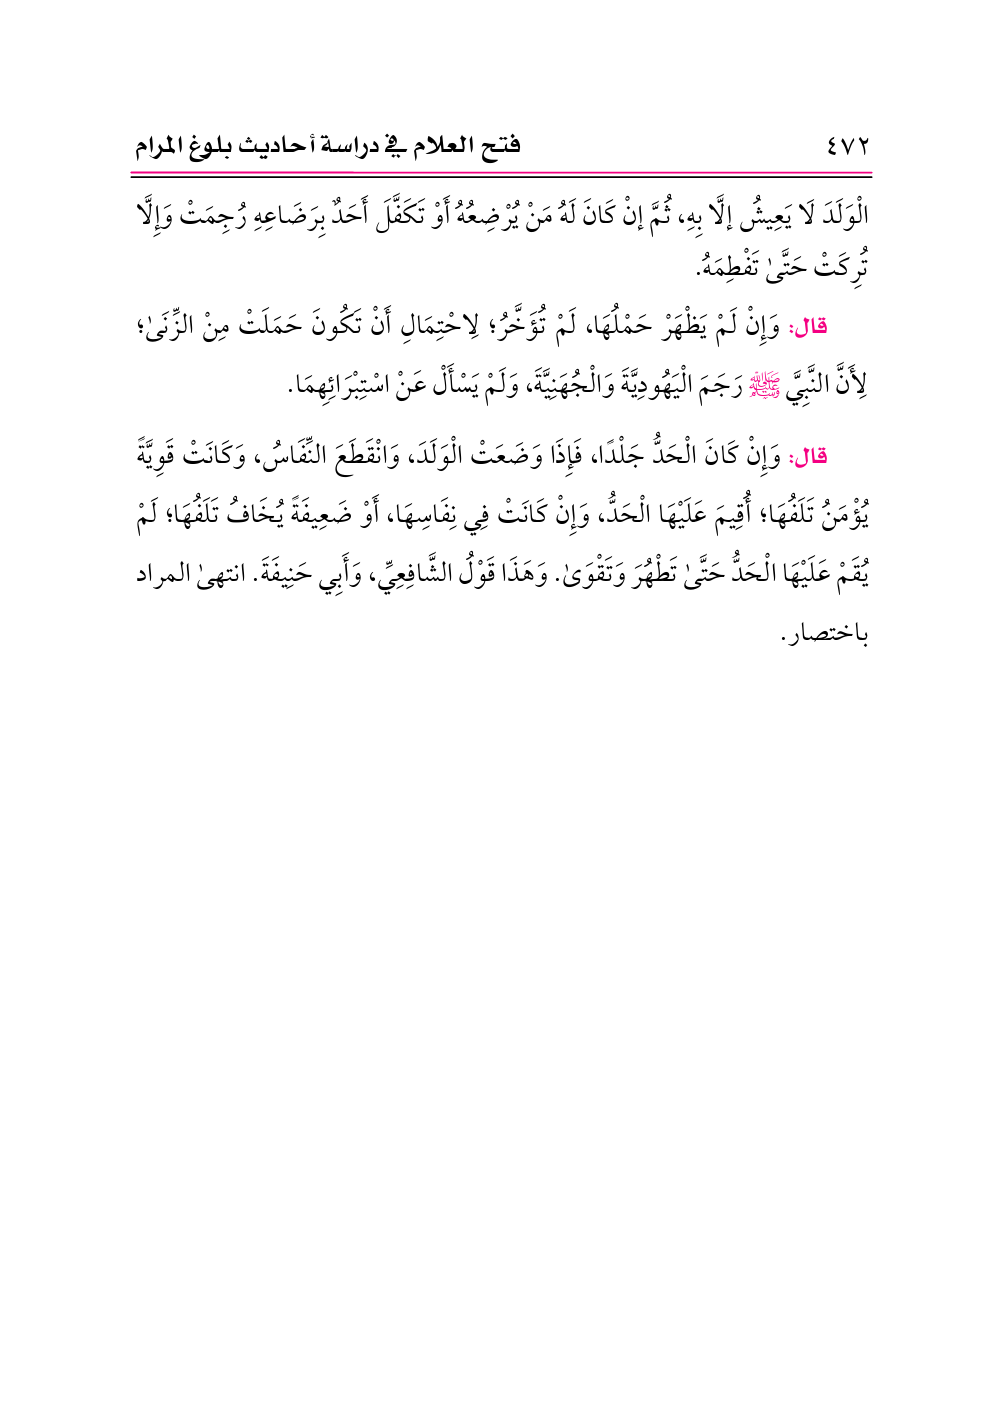 ٤٧٢ فتح العلام في دراسة أحاديث بلوغ المرام
الْوَلَدَ لَا يَعِيشُ إلَّا بِهِ، ثُمَّ إنْ كَانَ لَهُ مَنْ يُرْضِعُهُ أَوْ تَكَفَّلَ أَحَدٌ بِرَضَاعِهِ رُجِمَتْ وَإِلَّا
تُرِكَتْ حَتَّىٰ تَفْطِمَهُ.
قال: وَإِنْ لَمْ يَظْهَرْ حَمْلُهَا، لَمْ تُؤَخَّرْ؛ لِاحْتِمَالِ أَنْ تَكُونَ حَمَلَتْ مِنْ الزِّنَىٰ؛
لِأَنَّ النَّبِيَّ ﷺ رَجَمَ الْيَهُودِيَّةَ وَالْجُهَنِيَّةَ، وَلَمْ يَسْأَلْ عَنْ اسْتِبْرَائِهِمَا.
قال: وَإِنْ كَانَ الْحَدُّ جَلْدًا، فَإِذَا وَضَعَتْ الْوَلَدَ، وَانْقَطَعَ النِّفَاسُ، وَكَانَتْ قَوِيَّةً
يُؤْمَنُ تَلَفُهَا؛ أُقِيمَ عَلَيْهَا الْحَدُّ، وَإِنْ كَانَتْ فِي نِفَاسِهَا، أَوْ ضَعِيفَةً يُخَافُ تَلَفُهَا؛ لَمْ
يُقَمْ عَلَيْهَا الْحَدُّ حَتَّىٰ تَطْهُرَ وَتَقْوَىٰ. وَهَذَا قَوْلُ الشَّافِعِيِّ، وَأَبِي حَنِيفَةَ. انتهىٰ المراد
باختصار.